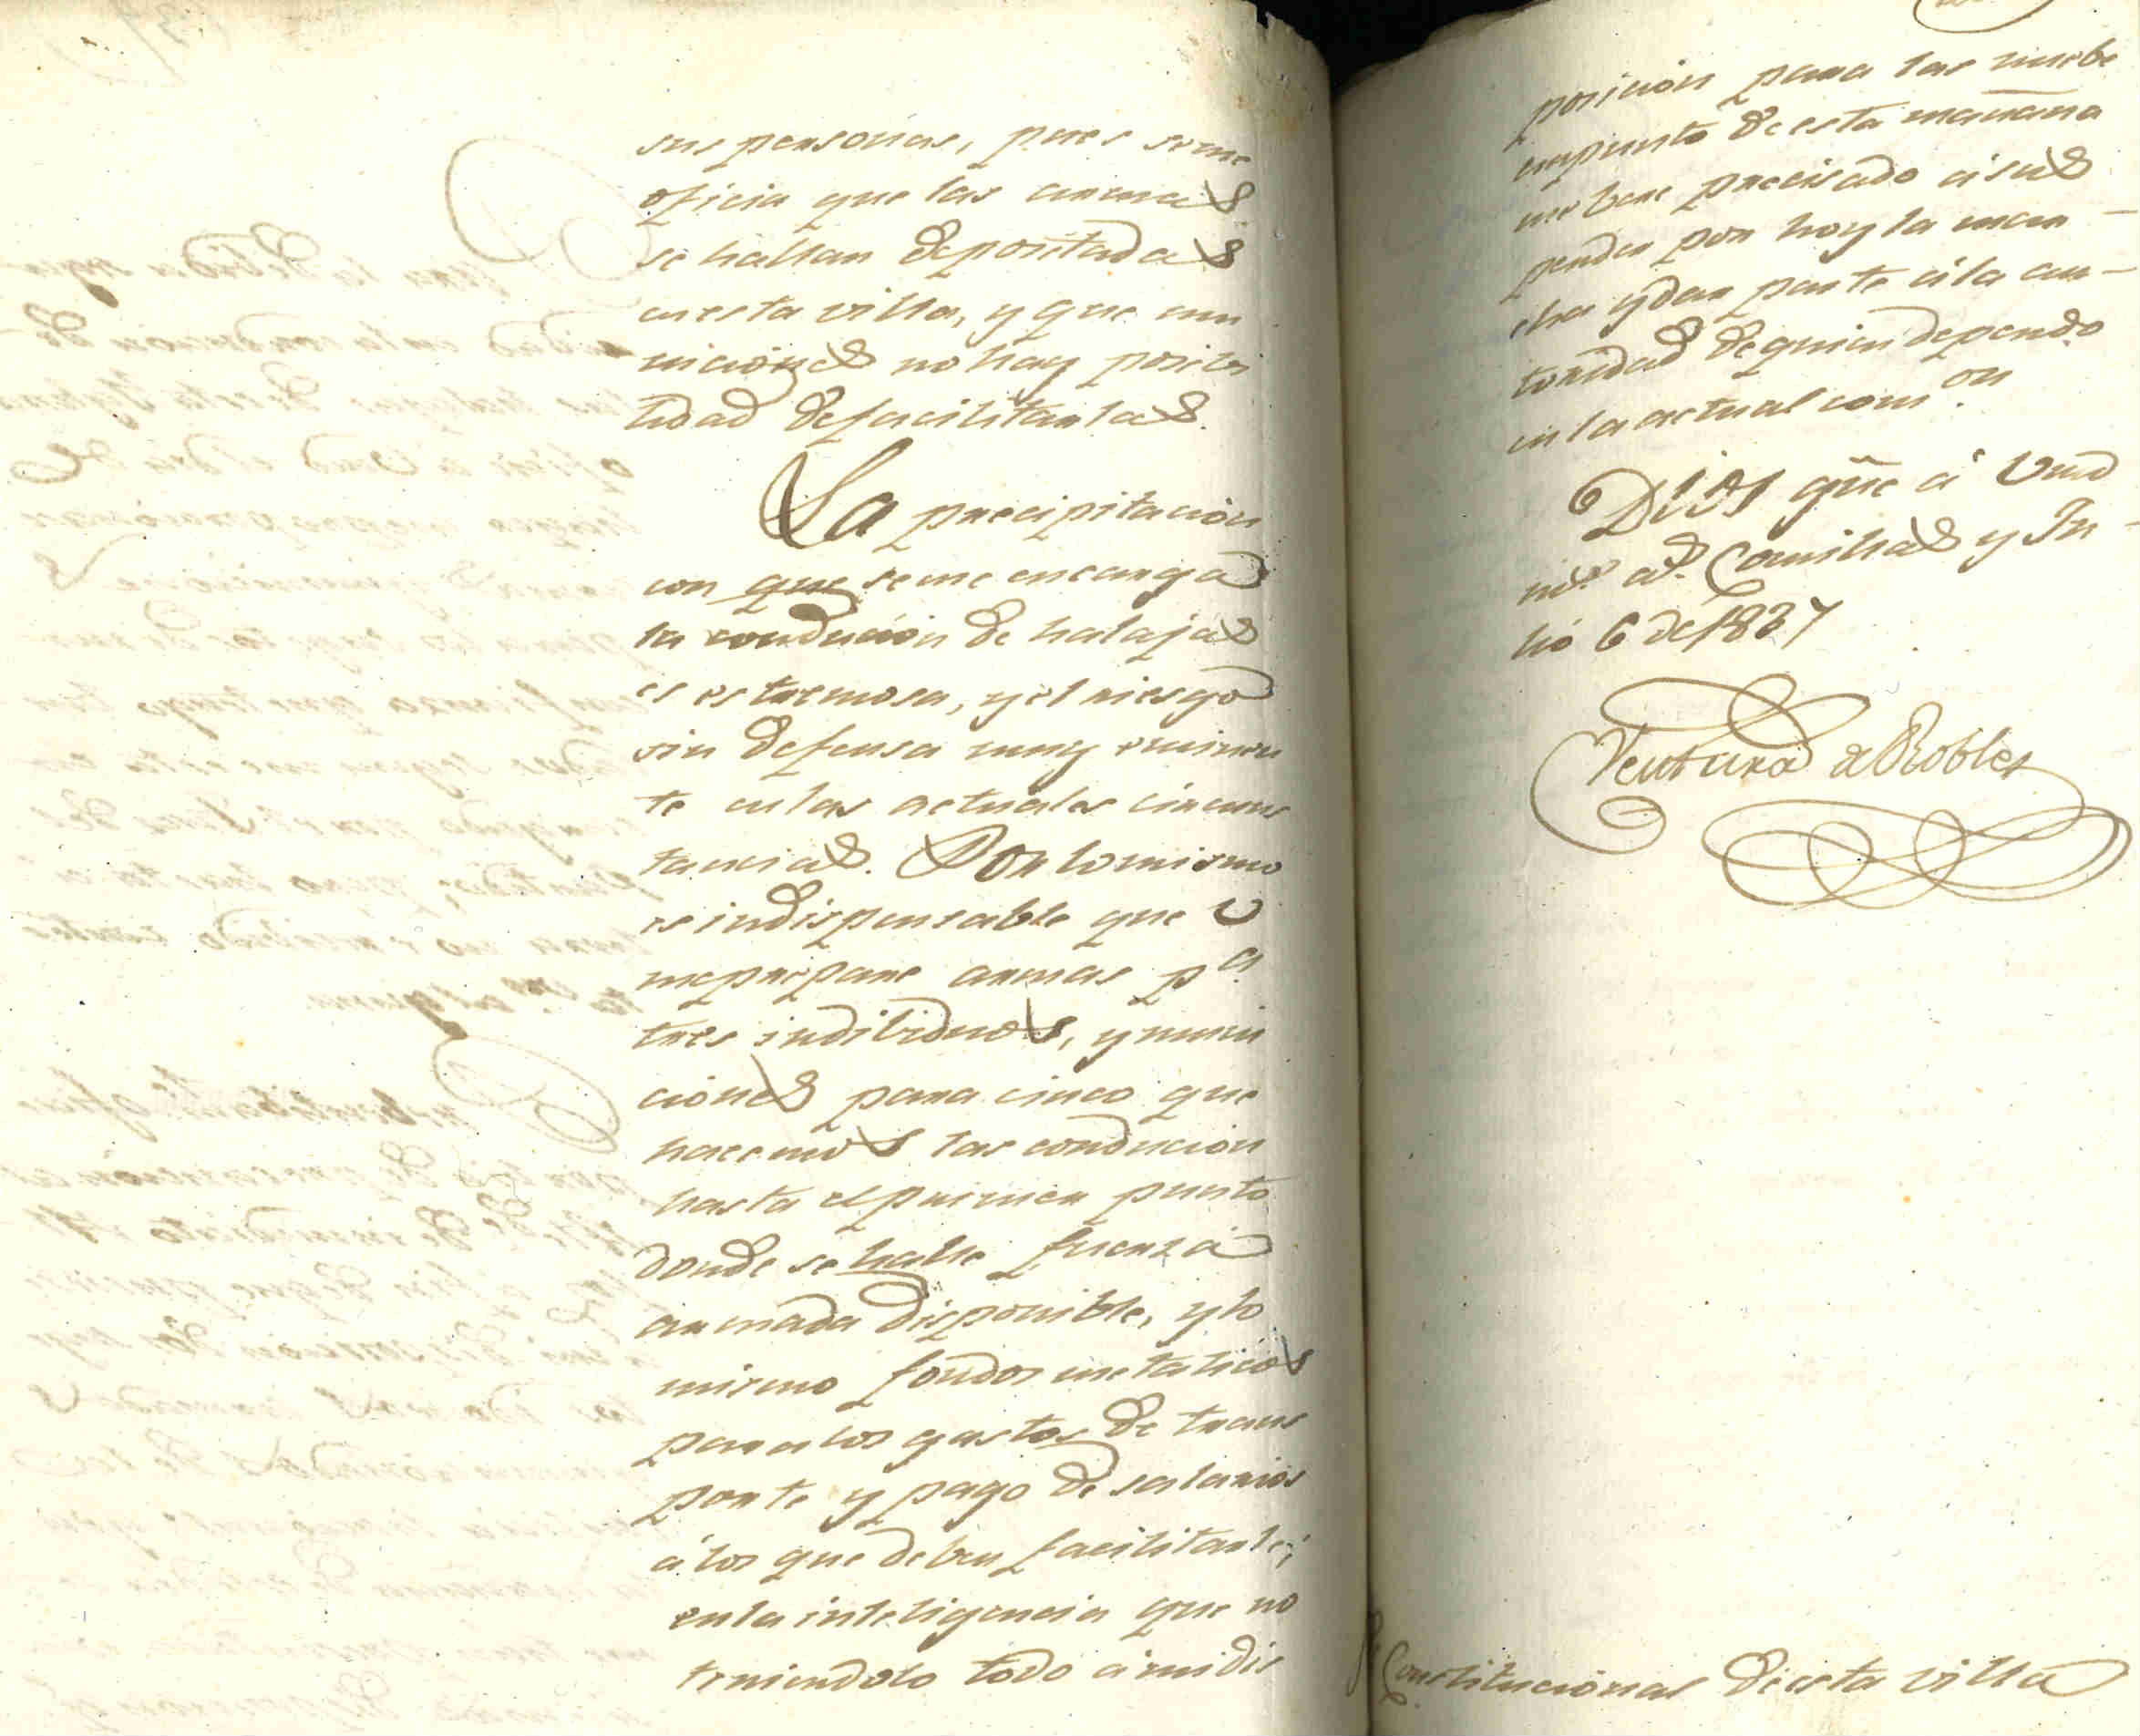 sus personas, pues se me
oficia que las armas
se hallan depositadas
en esta villa, y que mu
niciones no hay posivi
lidad de facilitarlas.
La precipitacion
con que se me encarga
la conducion de halajas
es estremosa, y el riesgo
sin defensa muy eminen
te en las actuales circuns
tancias. Por lo mismo
es indispensable que V
me prepare armas pa.
tres indibiduos, y muni
ciones para cinco que
hacemos las conducion
hasta el primer punto
donde se halle fuerza
armada disponible, y lo
mismo fondos metalicos
para los gastos de trans
porte y pago de salarios
á los que deben facilitarle;
en la inteligencia que no
teniendolo todo á mi dis
posicion para las nuebe
en punto de esta mañana
me bere precisado á sus
pender por hoy la mar-
cha y dar parte á la au-
toridad de quien dependo
en la actual comon.
Dios gũe á Vmd
ms. as. Comillas y Ju-
lio 6 de 1837
Ventura de Robles
Constitucional de esta villa